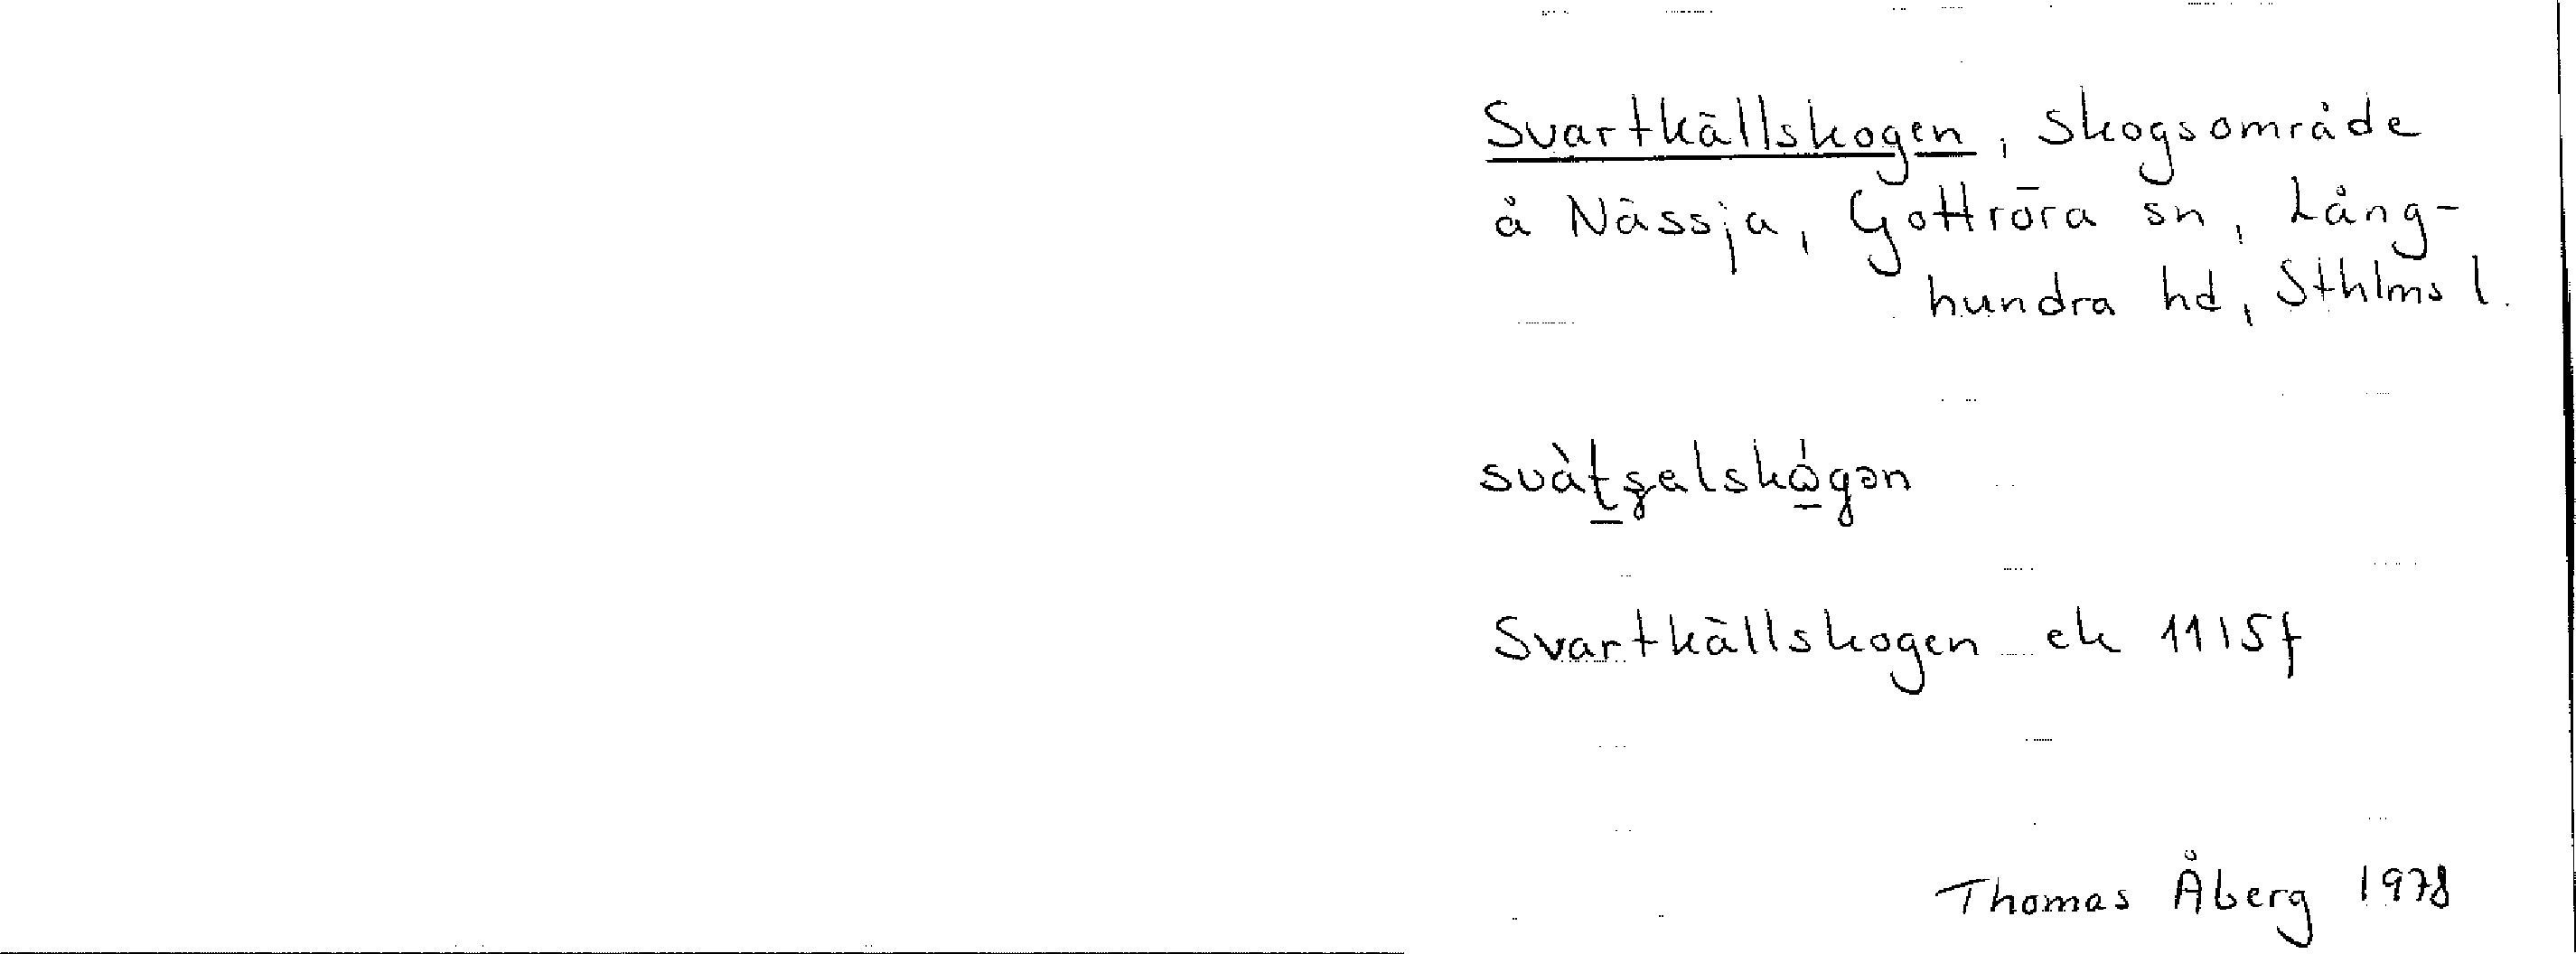 Svartkällskogen, skogsområde
å Nässja, Gottröra sn, Lång-
hundra hd, Sthlms l.
svàtʂelskǿgən
Svartkällskogen ek 11I5f
Thomas Åberg 1978